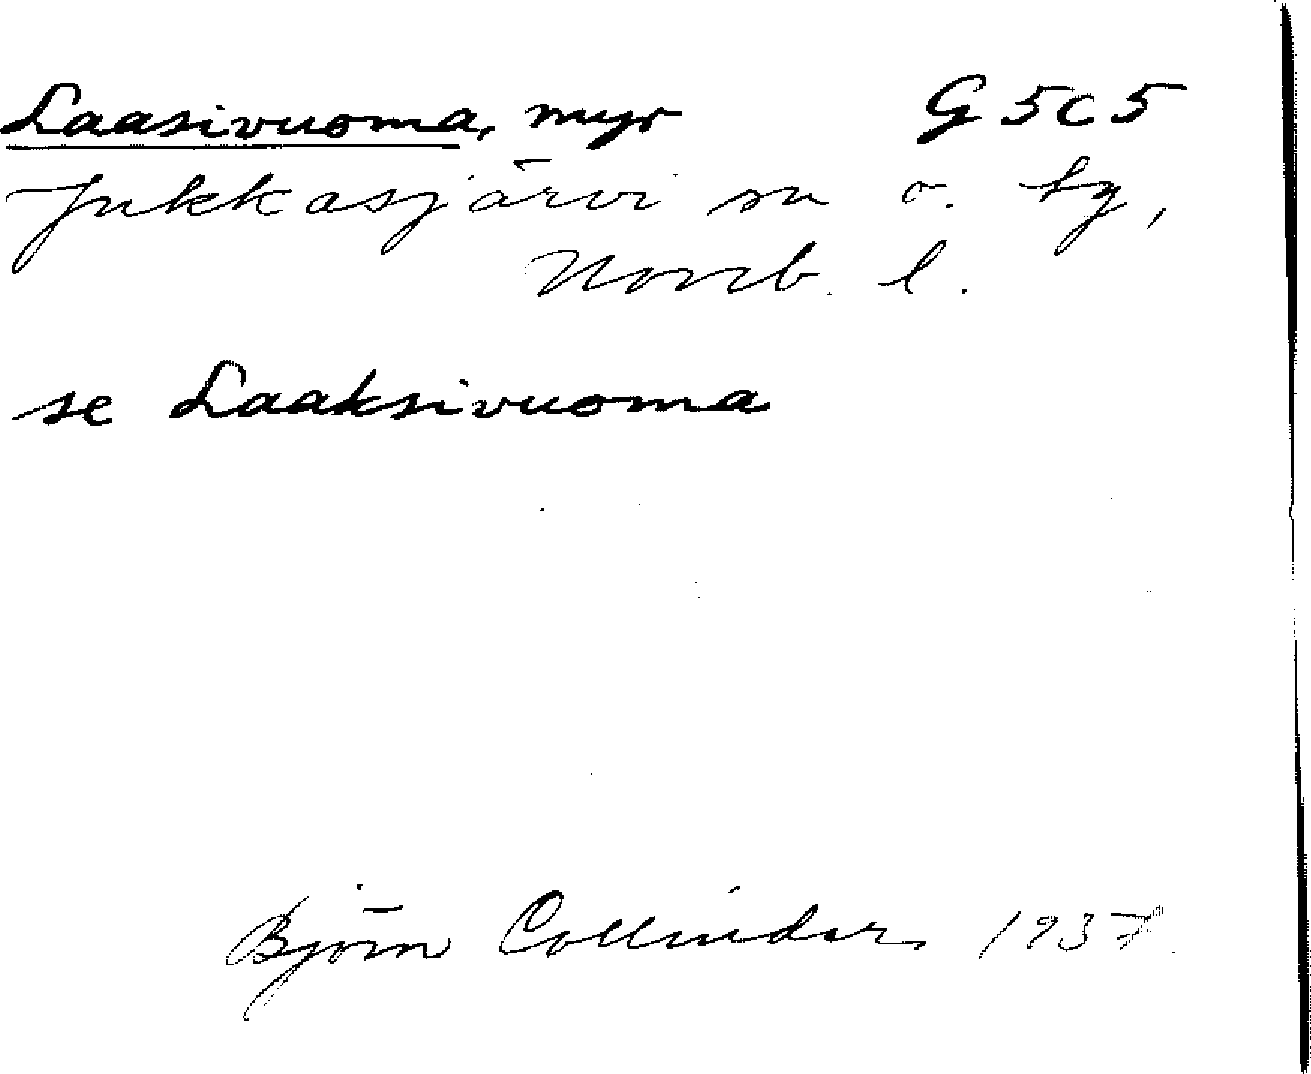 Laasivuoma, myr G5C5
Jukkasjärvi sn o. tg,
Norrb. l.
se Laaksivuoma
Björn Collinder 1937